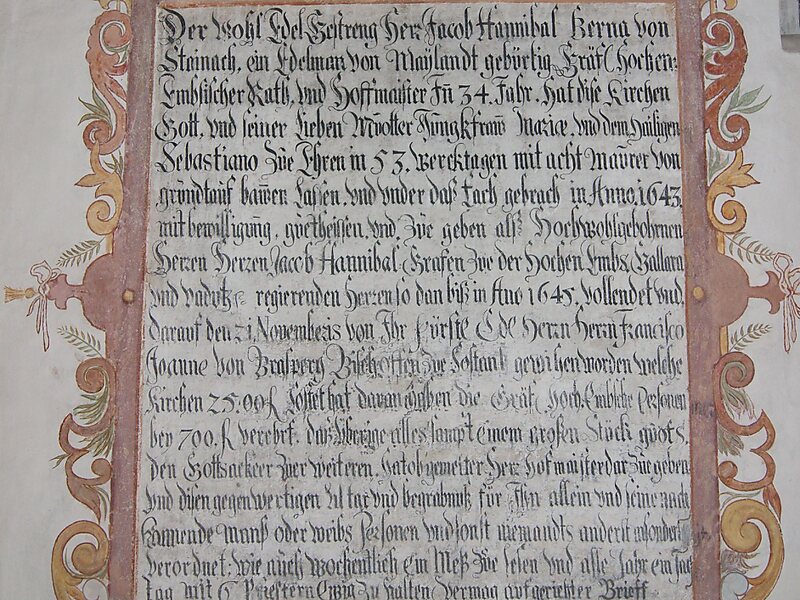 Der Wohl Edel Gestreng Herr Jacob Hannibal Berna von
Steinach, ein Edelman von Maylandt gebürtig, Gräfl. Hochen=
Embsischer Rath, vnd Hoffmaister Jn 34. Jahr. Hat dise Kirchen
Gott, vnd seiner Lieben Muotter Jungkfraw Mariæ, vnd dem Hailigen
Sebastiano Zue Ehren in 53. wercktagen mit acht maurer von
grundt auf bawen Lassen, vnd vnder daß Tach gebrach in Anno. 1643.
mit bewilligung, guetheissen, vnd Zue geben alß Hochwohlgebohrnen
Herzen Herzen Jacob Hannibal Grafen Zue der Hochen Embs, Gallara
vnd Vadutz regierenden Herzen so dan biß in Año 1645. vollendet vnd
darauf den 21. Novembezis von Jhr Fürstl Herrn Herrn Francisco
Joanne von Prasperg Bischoffen Zue Costantz geweihen worden welche
Kirchen 2500 R Costet hat daran geben die Gräfl Hoch Embsische Personen
bey 700. R verehrt. daß Vberige alles sampt einem großen Stuck guots,
den Gottsackeer Zuer weiteren, hat obgemelter Herz Hofmaister dar Zue geben
Vnd disen gegenwertigen Altar vnd begräbnuß für Jhn allein vnd seine nach
kommende manß oder weibs Personen vnd sonst niemandts anderst insonderheit
verordnet: wie auch wochentlich Ein Meß Zue lesen vnd alle Jahr ein Jahr
tag mit 6 Priestern Ewig Zu halten vermag aufgerichter Brieff